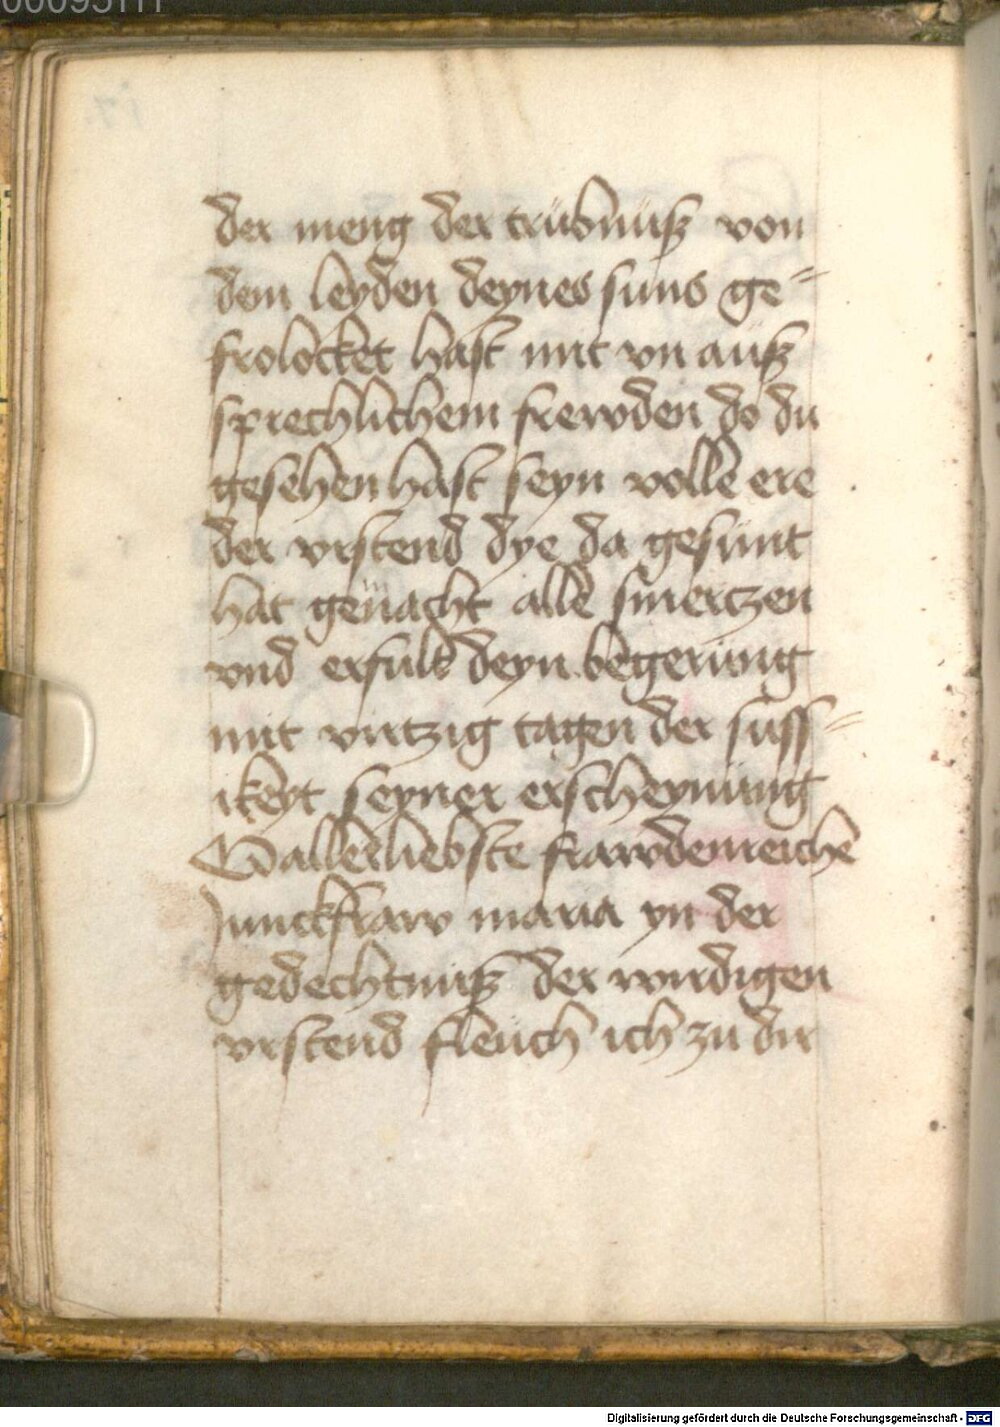 der meng der trübnüß von
dem leyden deynes suns ge=
frolocket hast mit vn auß
sprechlichem frewden do du
gesehen hast seyn volle ere
der vrstend dye da gesunt
hat gemacht alle smertzen
vnd erfult deyn begerung
mit virtzig tagen der suss=
ikeyt seyner erscheynung
O allerliebste frawdenreiche
Junckfraw maria yn der
gedechtnuß der wirdigen
vrstend fleuch ich zu dir
Digitalisierung gefördert durch die Deutsche Forschungsgemeinschaft - DFG